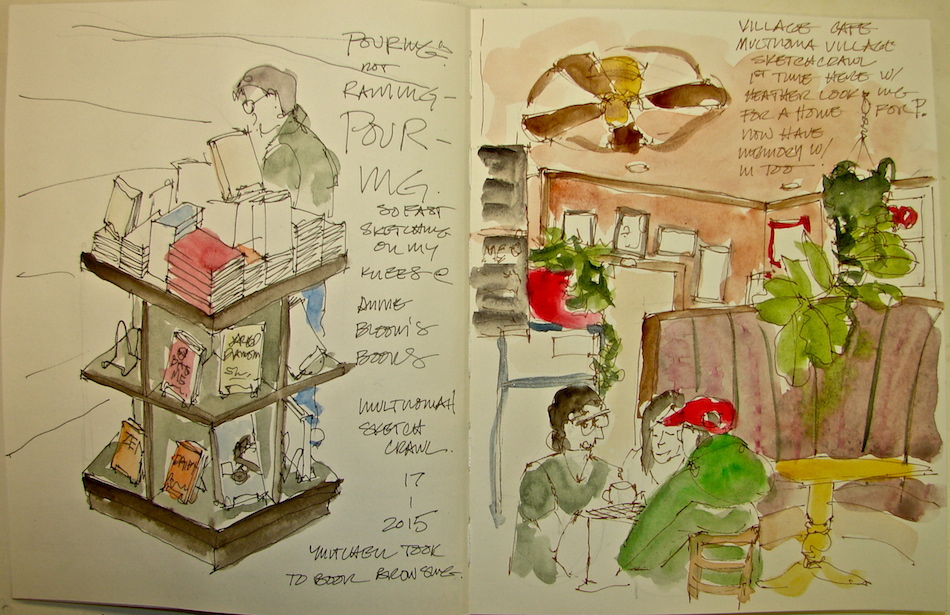 POURING
NOT
RAINING-
POUR-
ING.
SO EASY
SKETCHING
ON MY
KNEES @
ANNIE
BLOOM'S
BOOKS
MULTNOMAH
SKETCH
CRAWL.
17
1
2015
TOOK
TO BOOK BROWSING.
JARED
VILLAGE CAFE
MULTNOMA VILLAGE
SKETCHCRAWL
1ST TIME HERE W/
HEATHER LOOKING
FOR A HOME FOR P.
NOW HAVE
MEMORY W/
M TOO